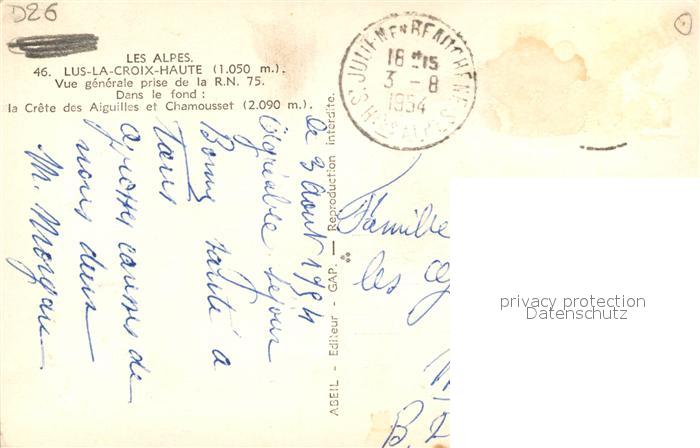 D26
LES ALPES.
46. LUS-LA-CROIX-HAUTE (1.050 m.).
Vue générale prise de la R.N. 75.
Dans le fond :
la Crête des Aiguilles et Chamousset (2.090 m.).
ST JULIEN EN BEAUCHÊNE
18 H 15
3 - 8
1954
HTES ALPES
ABEIL - Editeur - GAP. — Reproduction interdite.
le 3 Août 1954
Agréable séjour
Bonne santé à
Tous
caresses de
nous deux
M. Morgan
Famille
les
B.
privacy protection
Datenschutz